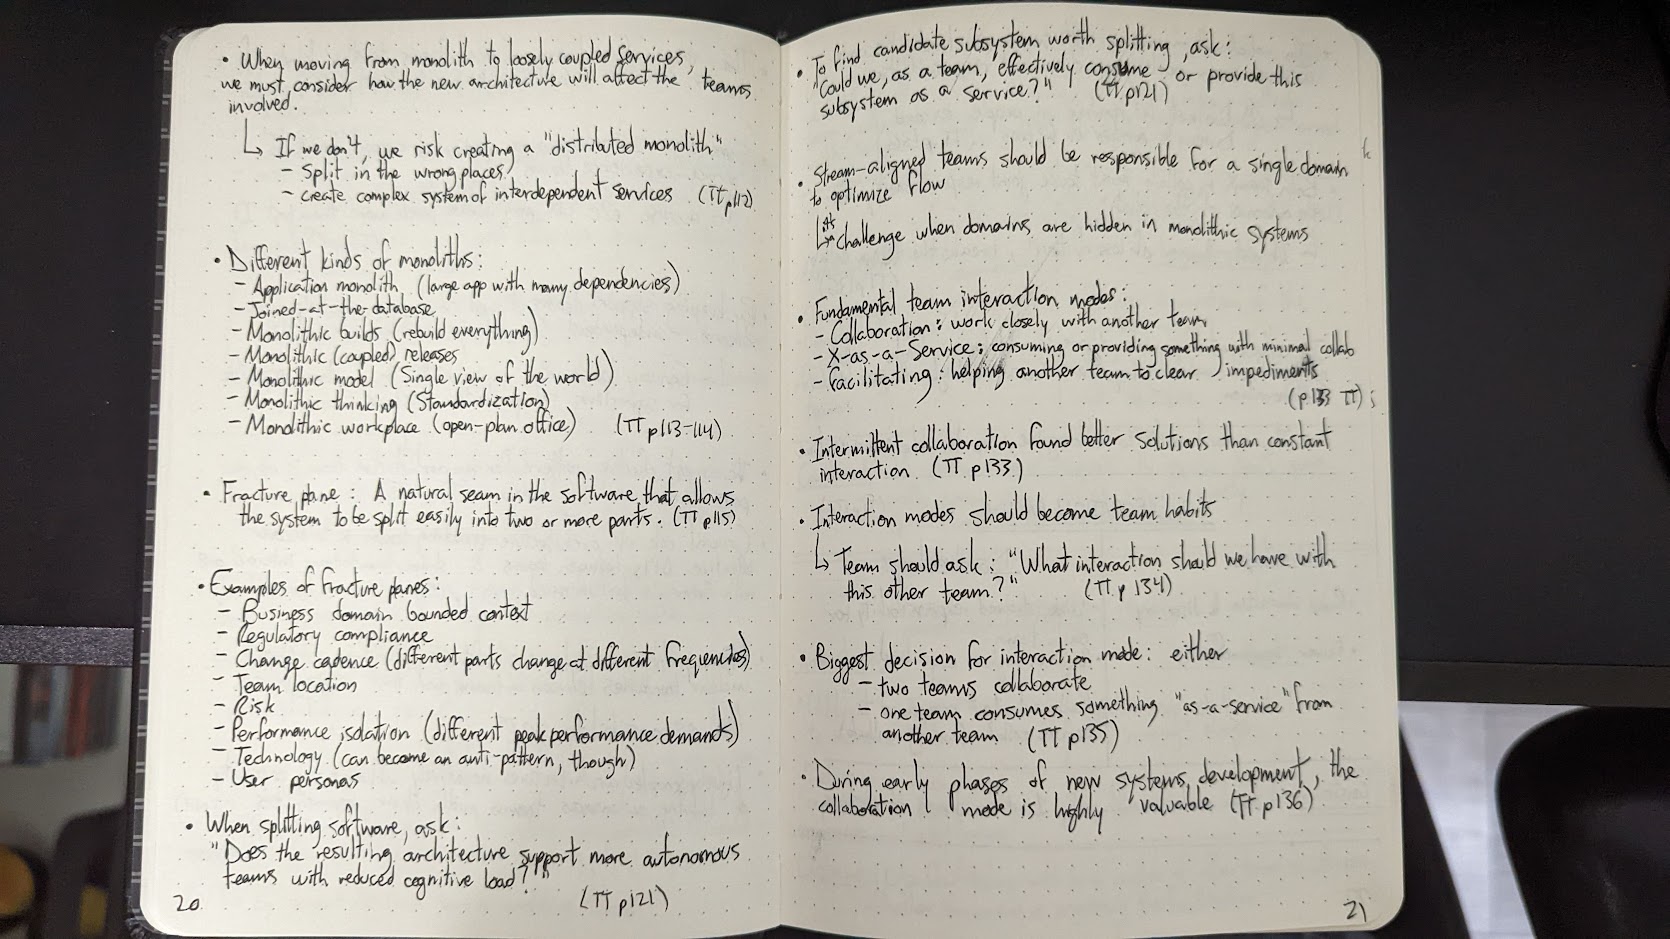 • When moving from monolith to loosely coupled services,
we must consider how the new architecture will affect the teams
involved.
↳ If we don't, we risk creating a "distributed monolith"
- Split in the wrong places
- create complex system of interdependent services (TT p112)
• Different kinds of monoliths:
- Application monolith (large app with many dependencies)
- Joined-at-the-database
- Monolithic builds (rebuild everything)
- Monolithic (coupled) releases
- Monolithic model (Single view of the world)
- Monolithic thinking (Standardization)
- Monolithic workplace (open-plan office) (TT p113-114)
• Fracture plane: A natural seam in the software that allows
the system to be split easily into two or more parts. (TT p115)
• Examples of fracture planes:
- Business domain bounded context
- Regulatory compliance
- Change cadence (different parts change at different frequencies)
- Team location
- Risk
- Performance isolation (different peak performance demands)
- Technology (can become an anti-pattern, though)
- User personas
• When splitting software, ask:
"Does the resulting architecture support more autonomous
teams with reduced cognitive load?"
(TT p121)
20
• To find candidate subsystem worth splitting, ask:
"Could we, as a team, effectively consume or provide this
subsystem as a service?" (TT p121)
• Stream-aligned teams should be responsible for a single domain
to optimize flow
↳ challenge when domains are hidden in monolithic systems
• Fundamental team interaction modes:
- Collaboration: work closely with another team
- X-as-a-Service: consuming or providing something with minimal collab
- Facilitating: helping another team to clear impediments
(p133 TT)
• Intermittent collaboration found better solutions than constant
interaction (TT p133)
• Interaction modes should become team habits
↳ Team should ask: "What interaction should we have with
this other team?" (TT p 134)
• Biggest decision for interaction mode: either
- two teams collaborate
- one team consumes something "as-a-service" from
another team (TT p135)
• During early phases of new systems development, the
collaboration mode is highly valuable (TT p136)
21